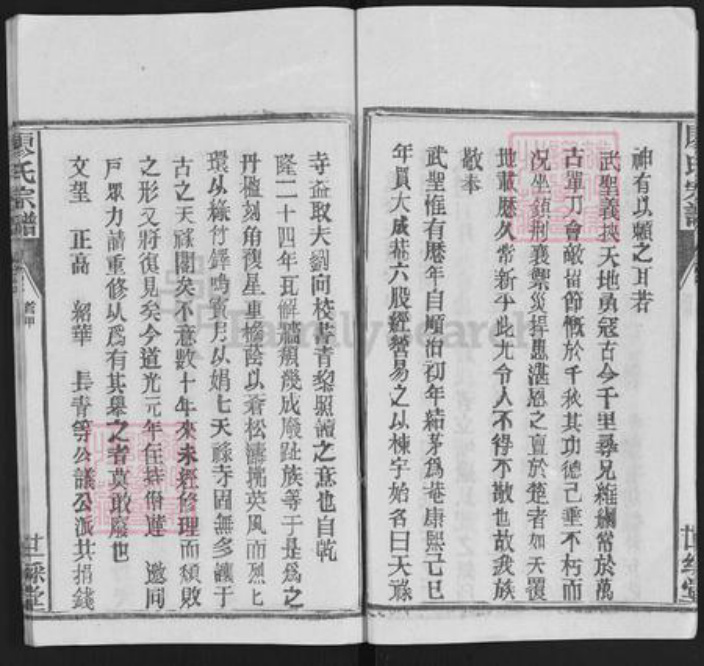 神有以顯之耳若
武聖義挾天地勇冠古今千里尋兄維綱常於萬
古單刀會敵留節慨於千秋其功德已垂不朽而
况坐鎮荆襄禦災捍患湛恩之亶於楚者如天覆
地載歷久常新乎此尤令人不得不敬也故我族
敬奉
武聖惟有歷年自順治初年結茅爲菴康熙己巳
年員大成菴六股經營易之以棟宇始名曰天祿
寺蓋取夫劉向校書青黎照讀之意也自乾
隆二十四年瓦解牆頹幾成廢趾族等于是爲之
丹楹刻角複星重檐蔭以蒼松濤擕英風而烈匕
環以綠竹鐸鳴賓月以娟七天祿寺固無多讓于
古之天祿閣矣不意數十年來未經修理而頹敗
之形又將復見矣今道光元年住持僧達 邀同
戸眾力請重修以爲有其舉之者莫敢廢也
文望 正高 紹華 長青等公議公派共捐錢
廖氏宗譜
世綵堂